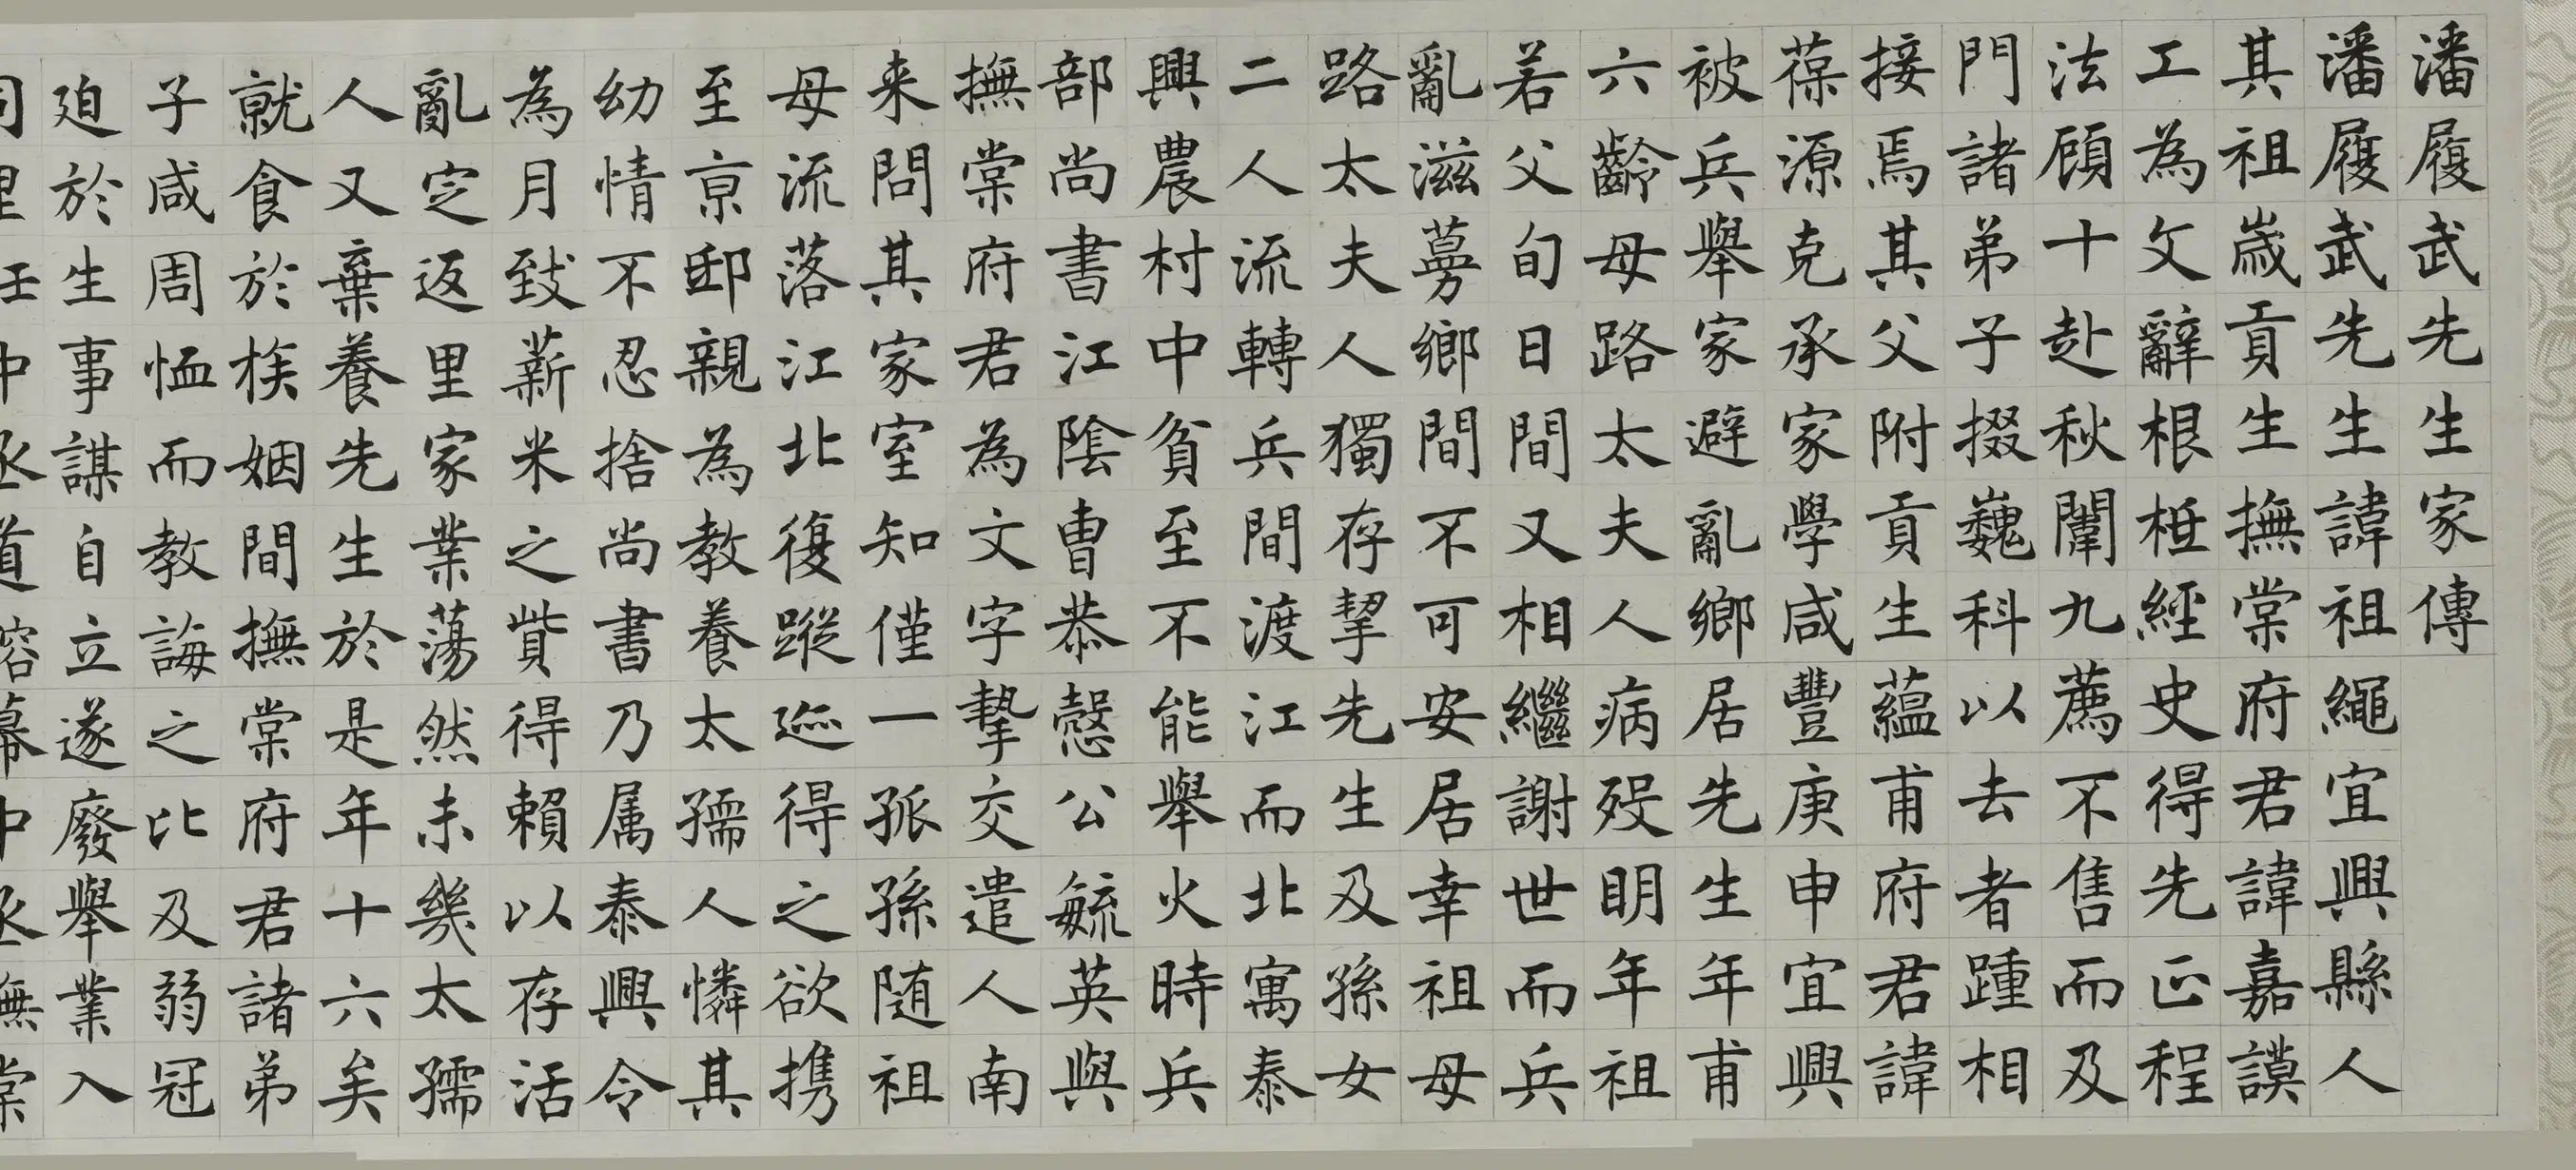 潘履武先生家傳
潘履武先生諱祖繩宜興縣人
其祖歲貢生撫棠府君諱嘉謨
工為文辭根柢經史得先正程
法顧十赴秋闈九薦不售而及
門諸弟子掇巍科以去者踵相
接焉其父附貢生蘊甫府君諱
葆源克承家學咸豐庚申宜興
被兵舉家避亂鄉居先生年甫
六齡母路太夫人病歿明年祖
若父旬日間又相繼謝世而兵
亂滋蔓鄉間不可安居幸祖母
路太夫人獨存挈先生及孫女
二人流轉兵間渡江而北寓泰
興農村中貧至不能舉火時兵
部尚書江陰曹恭慤公毓英與
撫棠府君為文字摯交遣人南
来問其家室知僅一孤孫随祖
母流落江北復蹤跡得之欲携
至京邸親為教養太孺人憐其
幼情不忍捨尚書乃属泰興令
為月致薪米之貲得賴以存活
亂定返里家業蕩然未幾太孺
人又棄養先生於是年十六矣
就食於族姻間撫棠府君諸弟
子咸周恤而教誨之比及弱冠
迫於生事謀自立遂廢舉業入